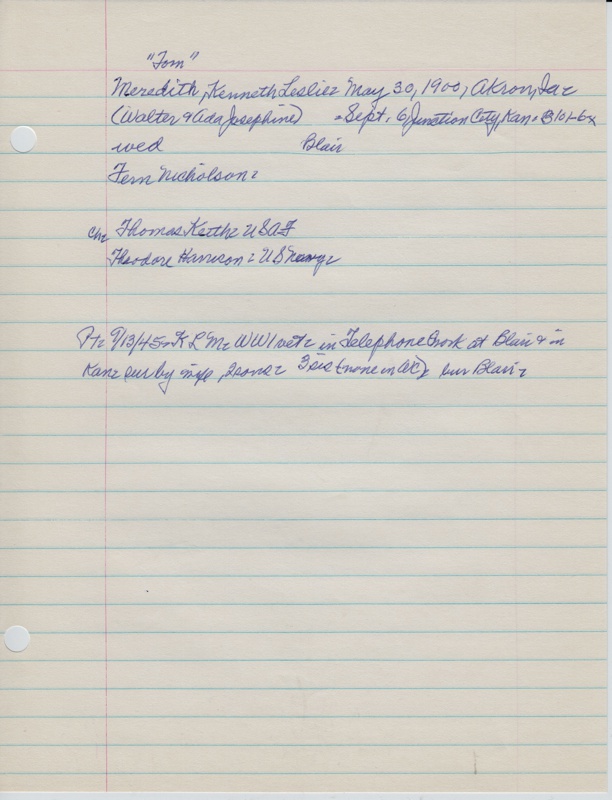 "Tom"
Meredith, Kenneth Leslie = May 30, 1900, Akron, Ia =
(Walter & Ada Josephine) = Sept. 6, Junction City, Kan =
wed Blair
Fern Nicholson =
ch = Thomas Keith = USAF
Theodore Harrison = US Navy =
9/13/45 = K L M = WW1 vet = in Telephone work at Blair & in
Kan = sur by wife, 2 sons = 3 sis (none in) bur Blair =